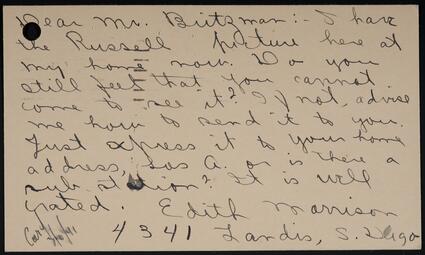 Dear Mr. Britzman:- I have
the Russell picture here at
my home now. Do you
still feel that you cannot
come to see it? If not, advise
me how to send it to you.
Just express it to your home
address, Los A. or is there a
sub station? It is well
crated. Edith Morrison
4341 Landis, S. Diego